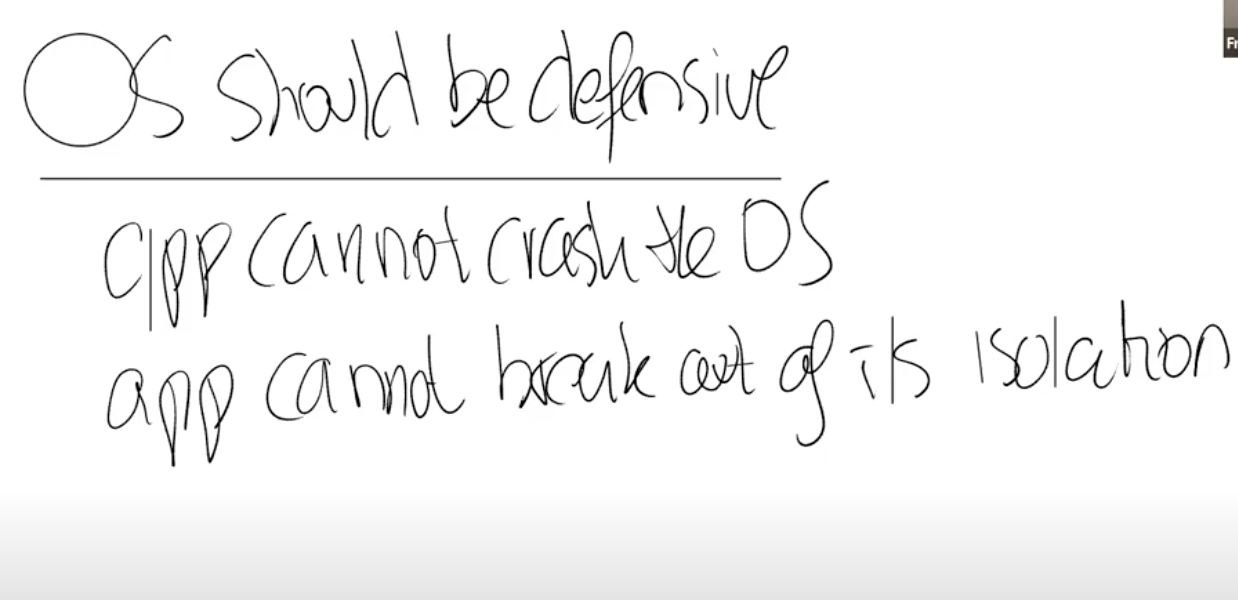 OS should be defensive
app cannot crash the OS
app cannot break out of its isolation
Fr